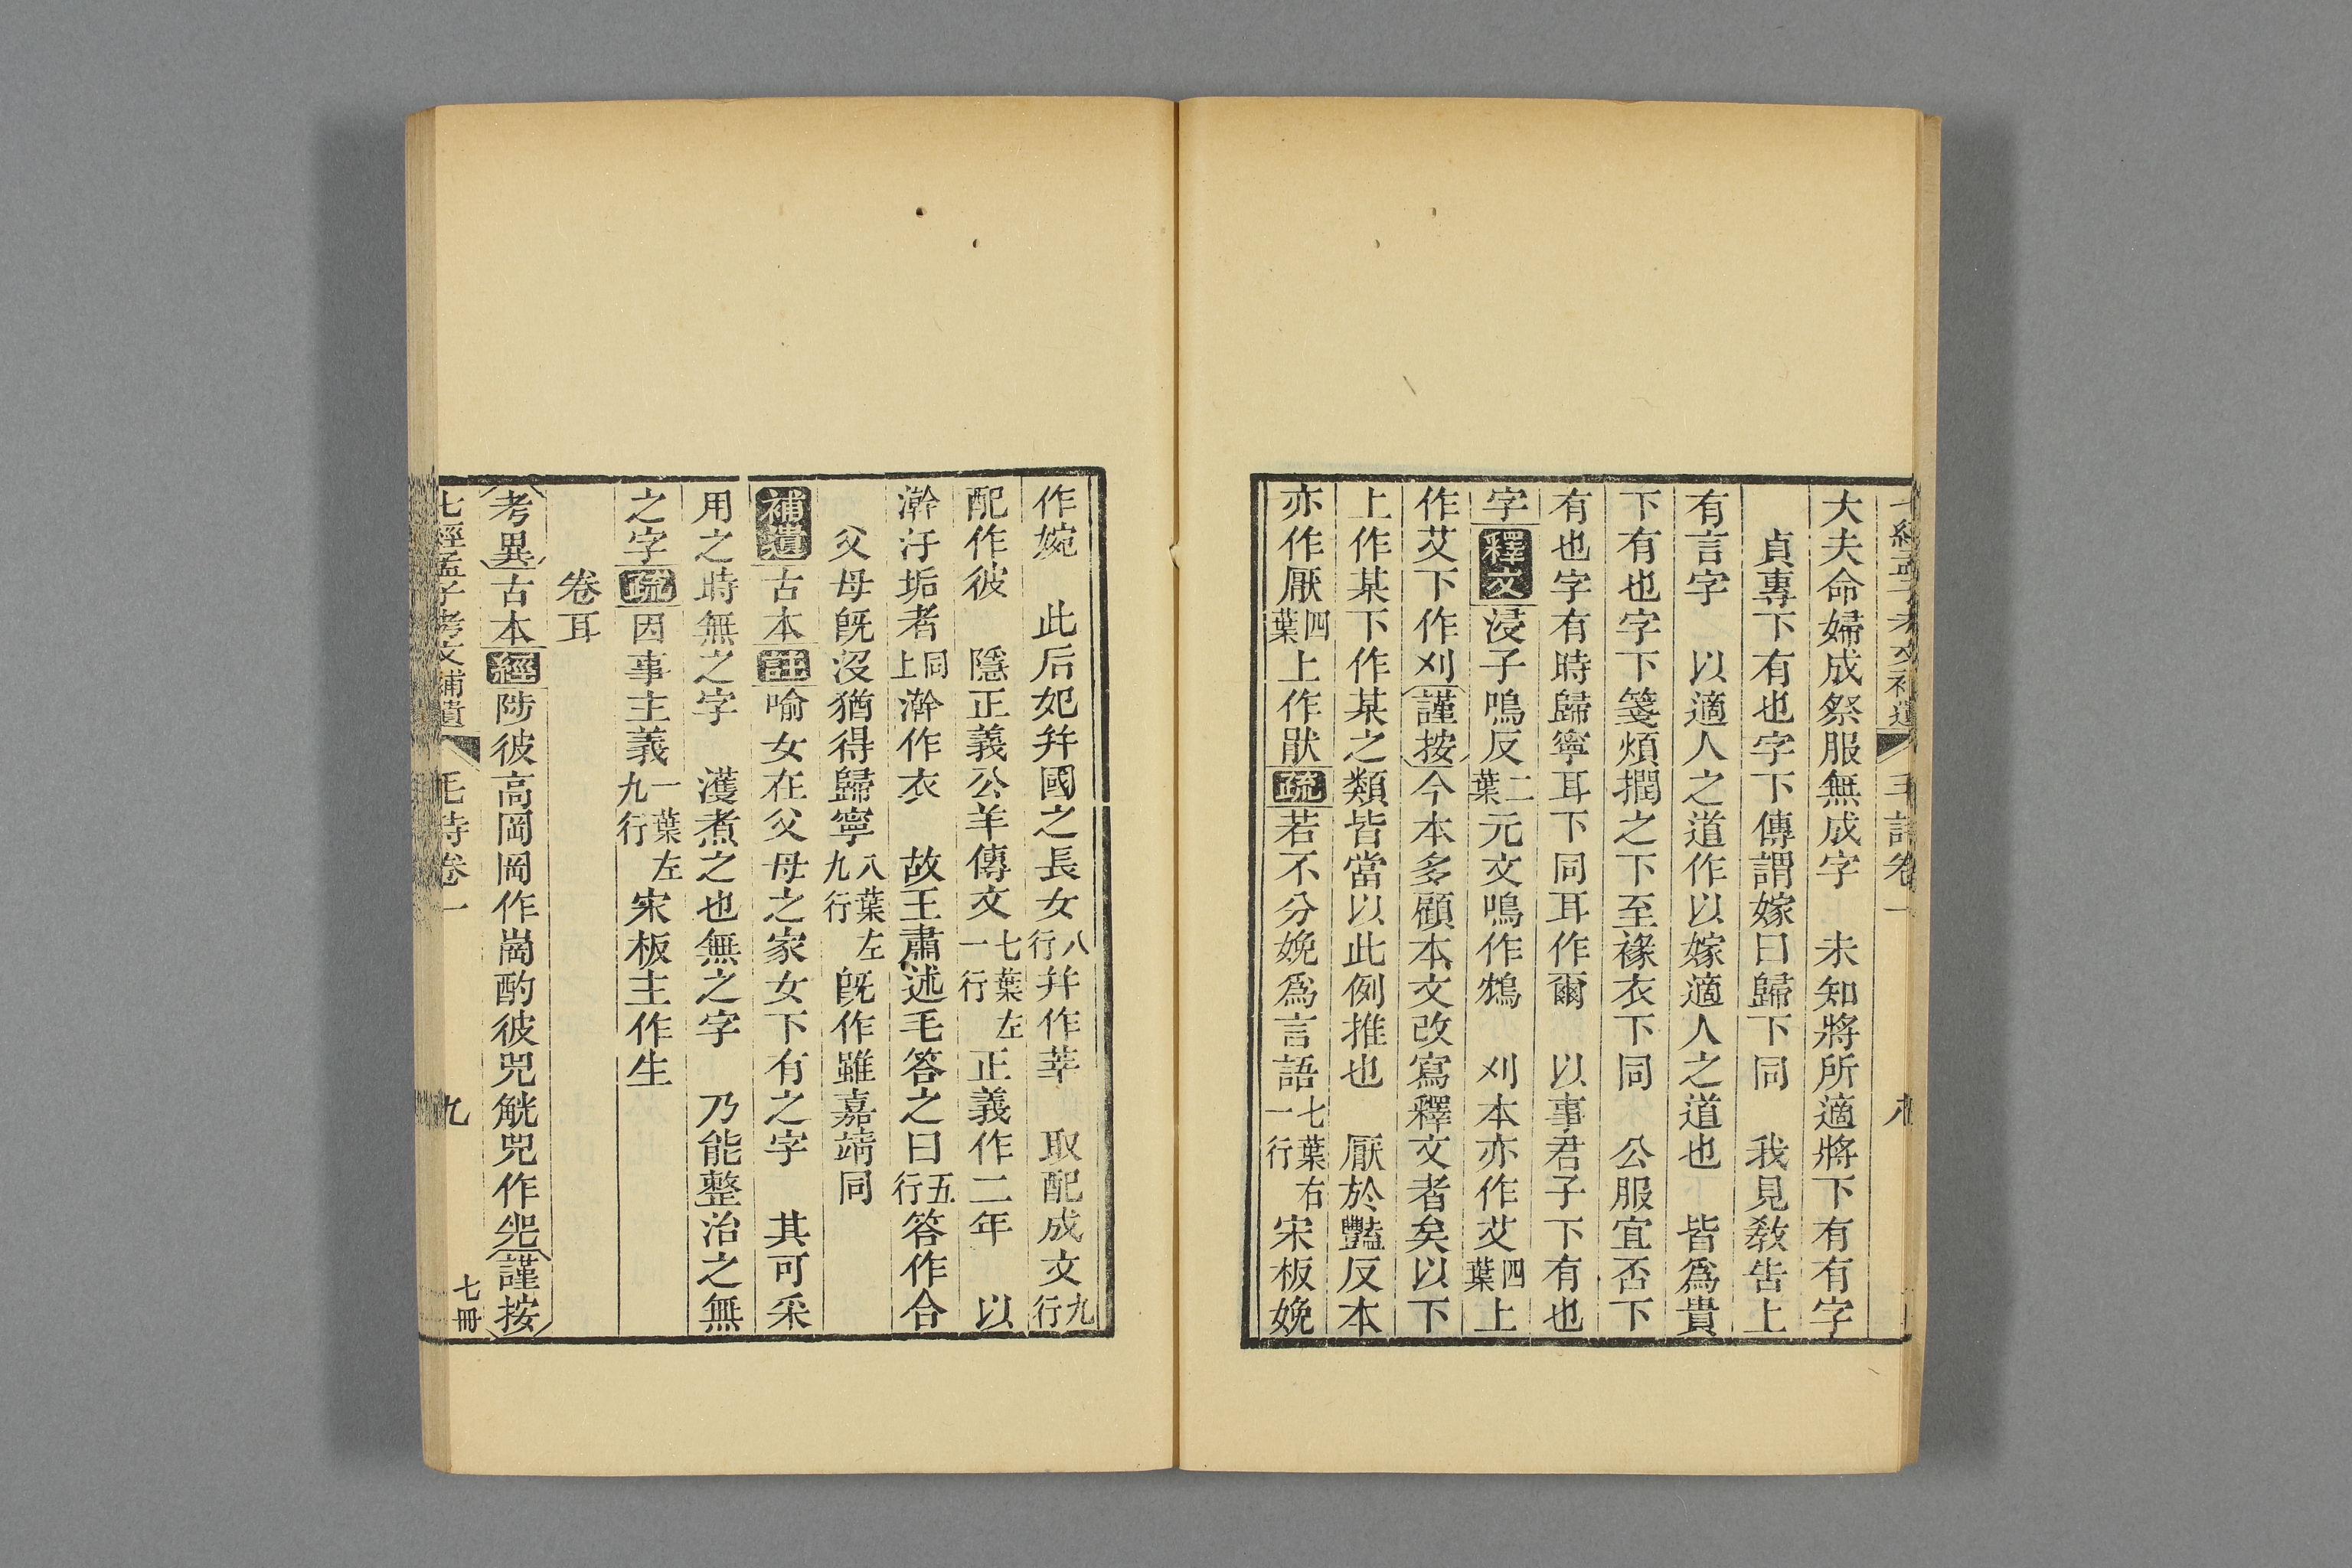 大夫命婦成祭服無成字　未知將所適將下有有字
貞專下有也字下傳謂嫁曰歸下同　我見敎告上
有言字　以適人之道作以嫁適人之道也　皆爲貴
下有也字下箋煩撋之下至褖衣下同　公服宜否下
有也字有時歸寧耳下同耳作爾　以事君子下有也
字釋文浸子鴆反二葉元文鴆作鴆　刈本亦作艾四葉上
作艾下作刈謹按今本多顧本文改寫釋文者矣以下
上作某下作某之類皆當以此例推也　厭於豔反本
亦作厭四葉上作猒疏若不分娩爲言語七葉右一行宋板娩
作婉　此后妃幷國之長女八行幷作莘　取配成文九行
配作彼　隱正義公羊傳文七葉左一行正義作二年　以
澣汙垢者同上澣作衣　故王肅述毛答之曰五行答作合
父母旣沒猶得歸寧八葉左九行旣作雖嘉靖同
補遺古本註喻女在父母之家女下有之字　其可采
用之時無之字　濩煮之也無之字　乃能整治之無
之字疏因事主義一葉左九行宋板主作生
卷耳
考異古本經陟彼高岡岡作崗酌彼兕觥兕作兕謹按
七經孟子考文補遺　毛詩卷一　九　七冊